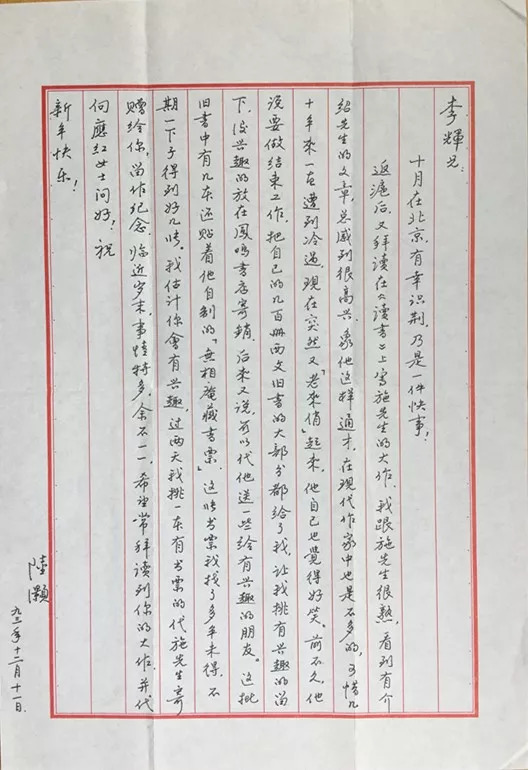 李輝兄：
十月在北京，有幸識荆，乃是一件快事！
返滬后，又拜读在《读書》上寫施先生的大作。我跟施先生很熟，看到有介
紹先生的文章，总感到很高兴。象他这样通才，在現代作家中也是不多的，可惜几
十年来一直遭到冷遇。現在突然又“老来俏”起来，他自己也覺得好笑。前不久，他
说要做结束工作，把自己的几百册西文旧書的大部分都给了我，让我挑有兴趣的留
下，没兴趣的放在鳳鸣書店寄销，后来又说，可以代他送一些给有兴趣的朋友。这批
旧書中有几本还贴着他自制的“無相庵藏書票”，这帖书票我找了多年未得，不
期一下子得到好几帖。我估计你會有兴趣，过两天我挑一本有书票的代施先生寄
赠给你，留作纪念。临近岁末，事情特多，余不一一。希望常拜读到你的大作。并代
向應红女士问好！祝
新年快乐！
陸灝
九三年十二月十一日